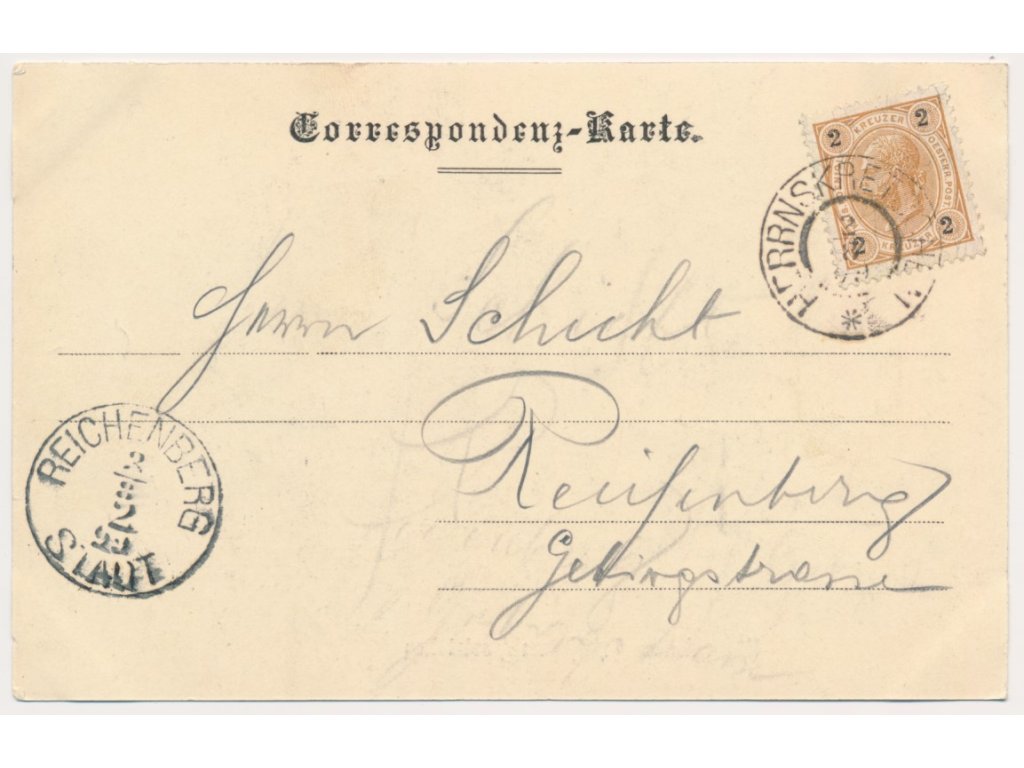 Correspondenz-Karte.
2 KREUZER 2
OESTERR. POST.
2 KREUZER 2
HERRNSKRET
Herrn Schicht
Reichenberg
Gebirgstrasse
REICHENBERG
STADT